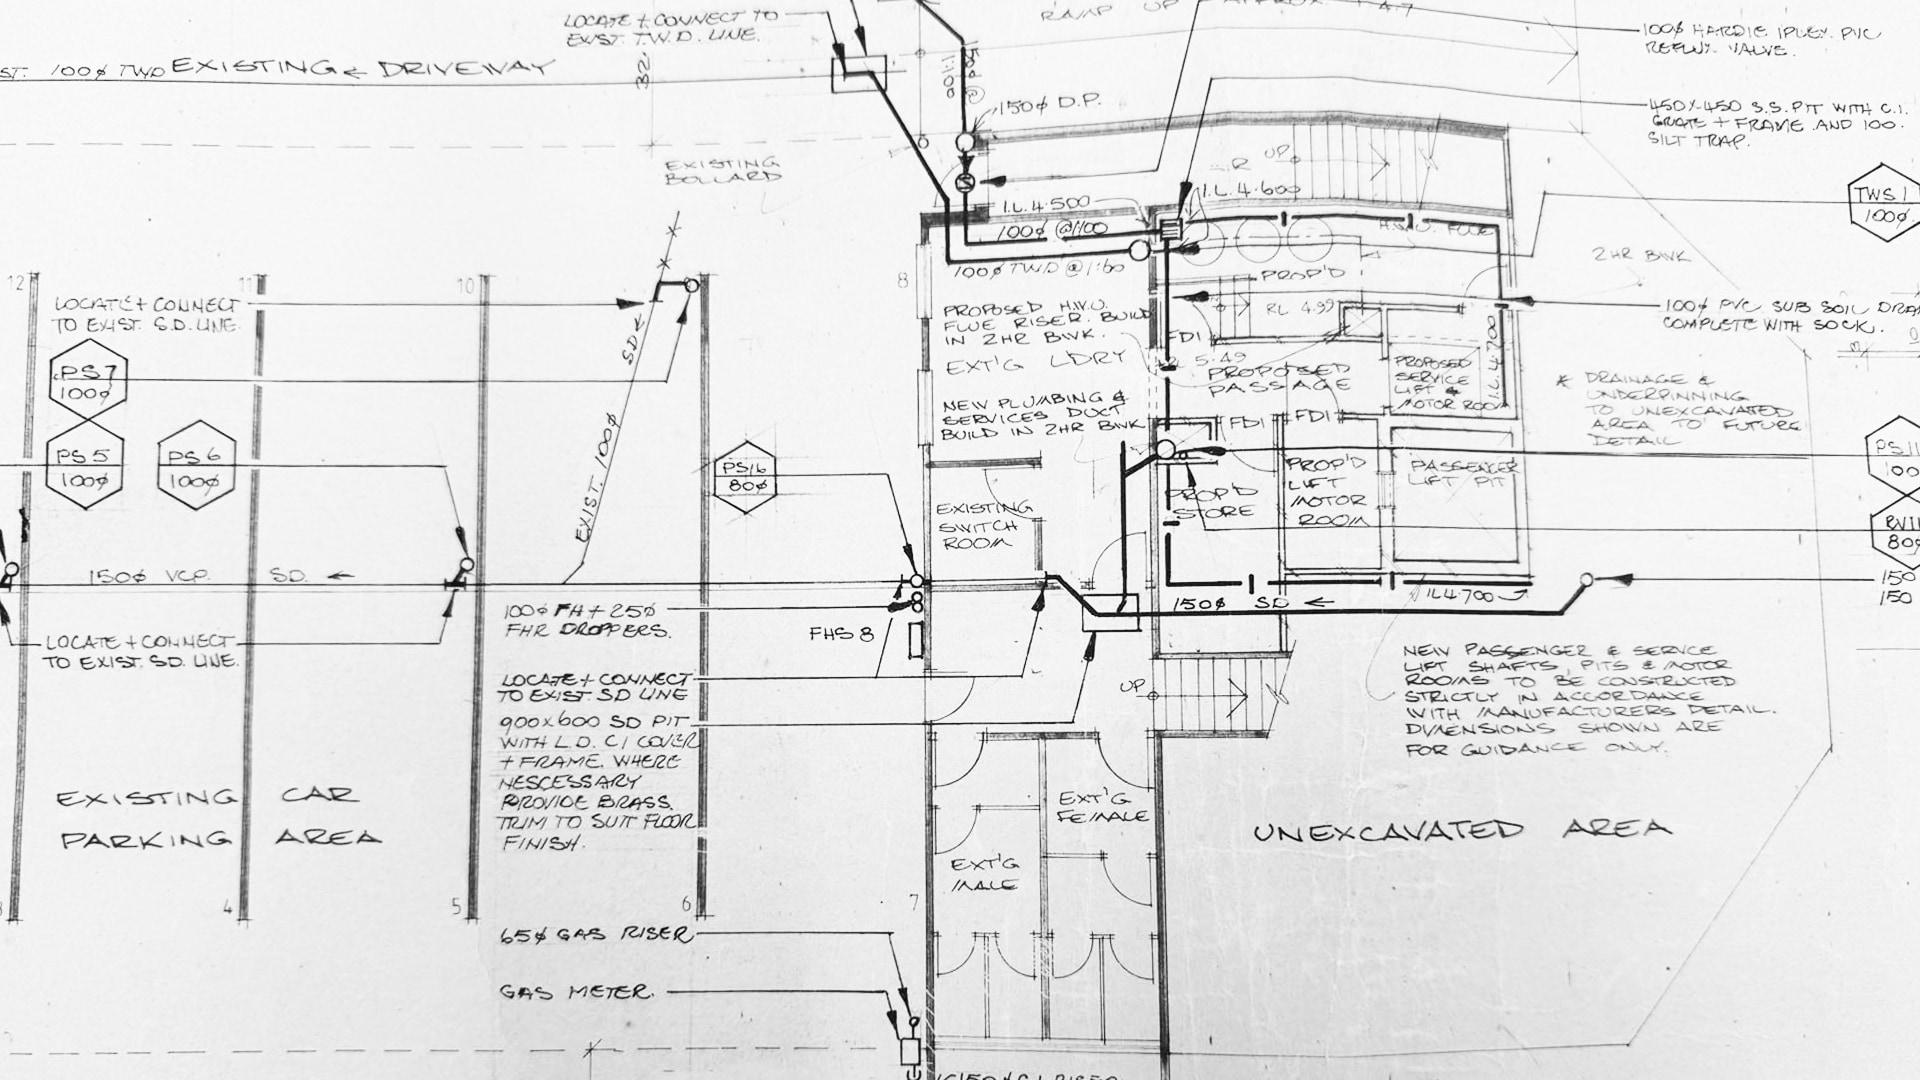 LOCATE + CONNECT TO
EXIST. T.W.D. LINE.
100ϕ TWD EXISTING DRIVEWAY
32
150ϕ @
1:100
150ϕ D.P.
RAMP UP
100ϕ HARDIE IPLEX PVC
REFLUX VALVE.
450X450 S.S. PIT WITH C.I.
GRATE + FRAME AND 100.
SILT TRAP.
TWS.1
100ϕ
EXISTING
BOLLARD
UP
I.L. 4.500
I.L. 4.600
100ϕ @1:100
100ϕ TWD @ 1:60
H.W.U. FLUE
2HR BWK
100ϕ PVC SUB SOIL DRAI
COMPLETE WITH SOCK.
12
11
10
8
LOCATE + CONNECT
TO EXIST. S.D. LINE.
PS7
100ϕ
PS5
100ϕ
PS6
100ϕ
PS16
80ϕ
SD
EXIST. 100ϕ
PROPOSED H.W.U.
FLUE RISER. BUILD
IN 2HR BWK.
EXT'G LDRY
NEW PLUMBING &
SERVICES DUCT
BUILD IN 2HR BWK
PROP'D
RL 4.99
FDI
5.49
PROPOSED
PASSAGE
PROPOSED
SERVICE
LIFT &
MOTOR ROOM
I.L. 4.700
FDI
FDI
* DRAINAGE &
UNDERPINNING
TO UNEXCAVATED
AREA TO FUTURE
DETAIL
PS11
100
RV11
80ϕ
EXISTING
SWITCH
ROOM
PROP'D
STORE
PROP'D
LIFT
MOTOR
ROOM
PASSENGER
LIFT PIT
150ϕ VCP. SD.
100ϕ FH + 25ϕ
FHR DROPPERS.
FHS 8
150ϕ SD
IL 4.700
150
150
LOCATE + CONNECT
TO EXIST. SD. LINE.
LOCATE + CONNECT
TO EXIST. SD LINE
900x600 SD PIT
WITH L.D. CI COVER
+ FRAME. WHERE
NESCESSARY
PROVIDE BRASS.
TRIM TO SUIT FLOOR
FINISH.
UP
NEW PASSENGER & SERVICE
LIFT SHAFTS, PITS & MOTOR
ROOMS TO BE CONSTRUCTED
STRICTLY IN ACCORDANCE
WITH MANUFACTURERS DETAIL.
DIMENSIONS SHOWN ARE
FOR GUIDANCE ONLY.
EXISTING CAR
PARKING AREA
EXT'G
FEMALE
EXT'G
MALE
UNEXCAVATED AREA
4
5
6
7
65ϕ GAS RISER
GAS METER.